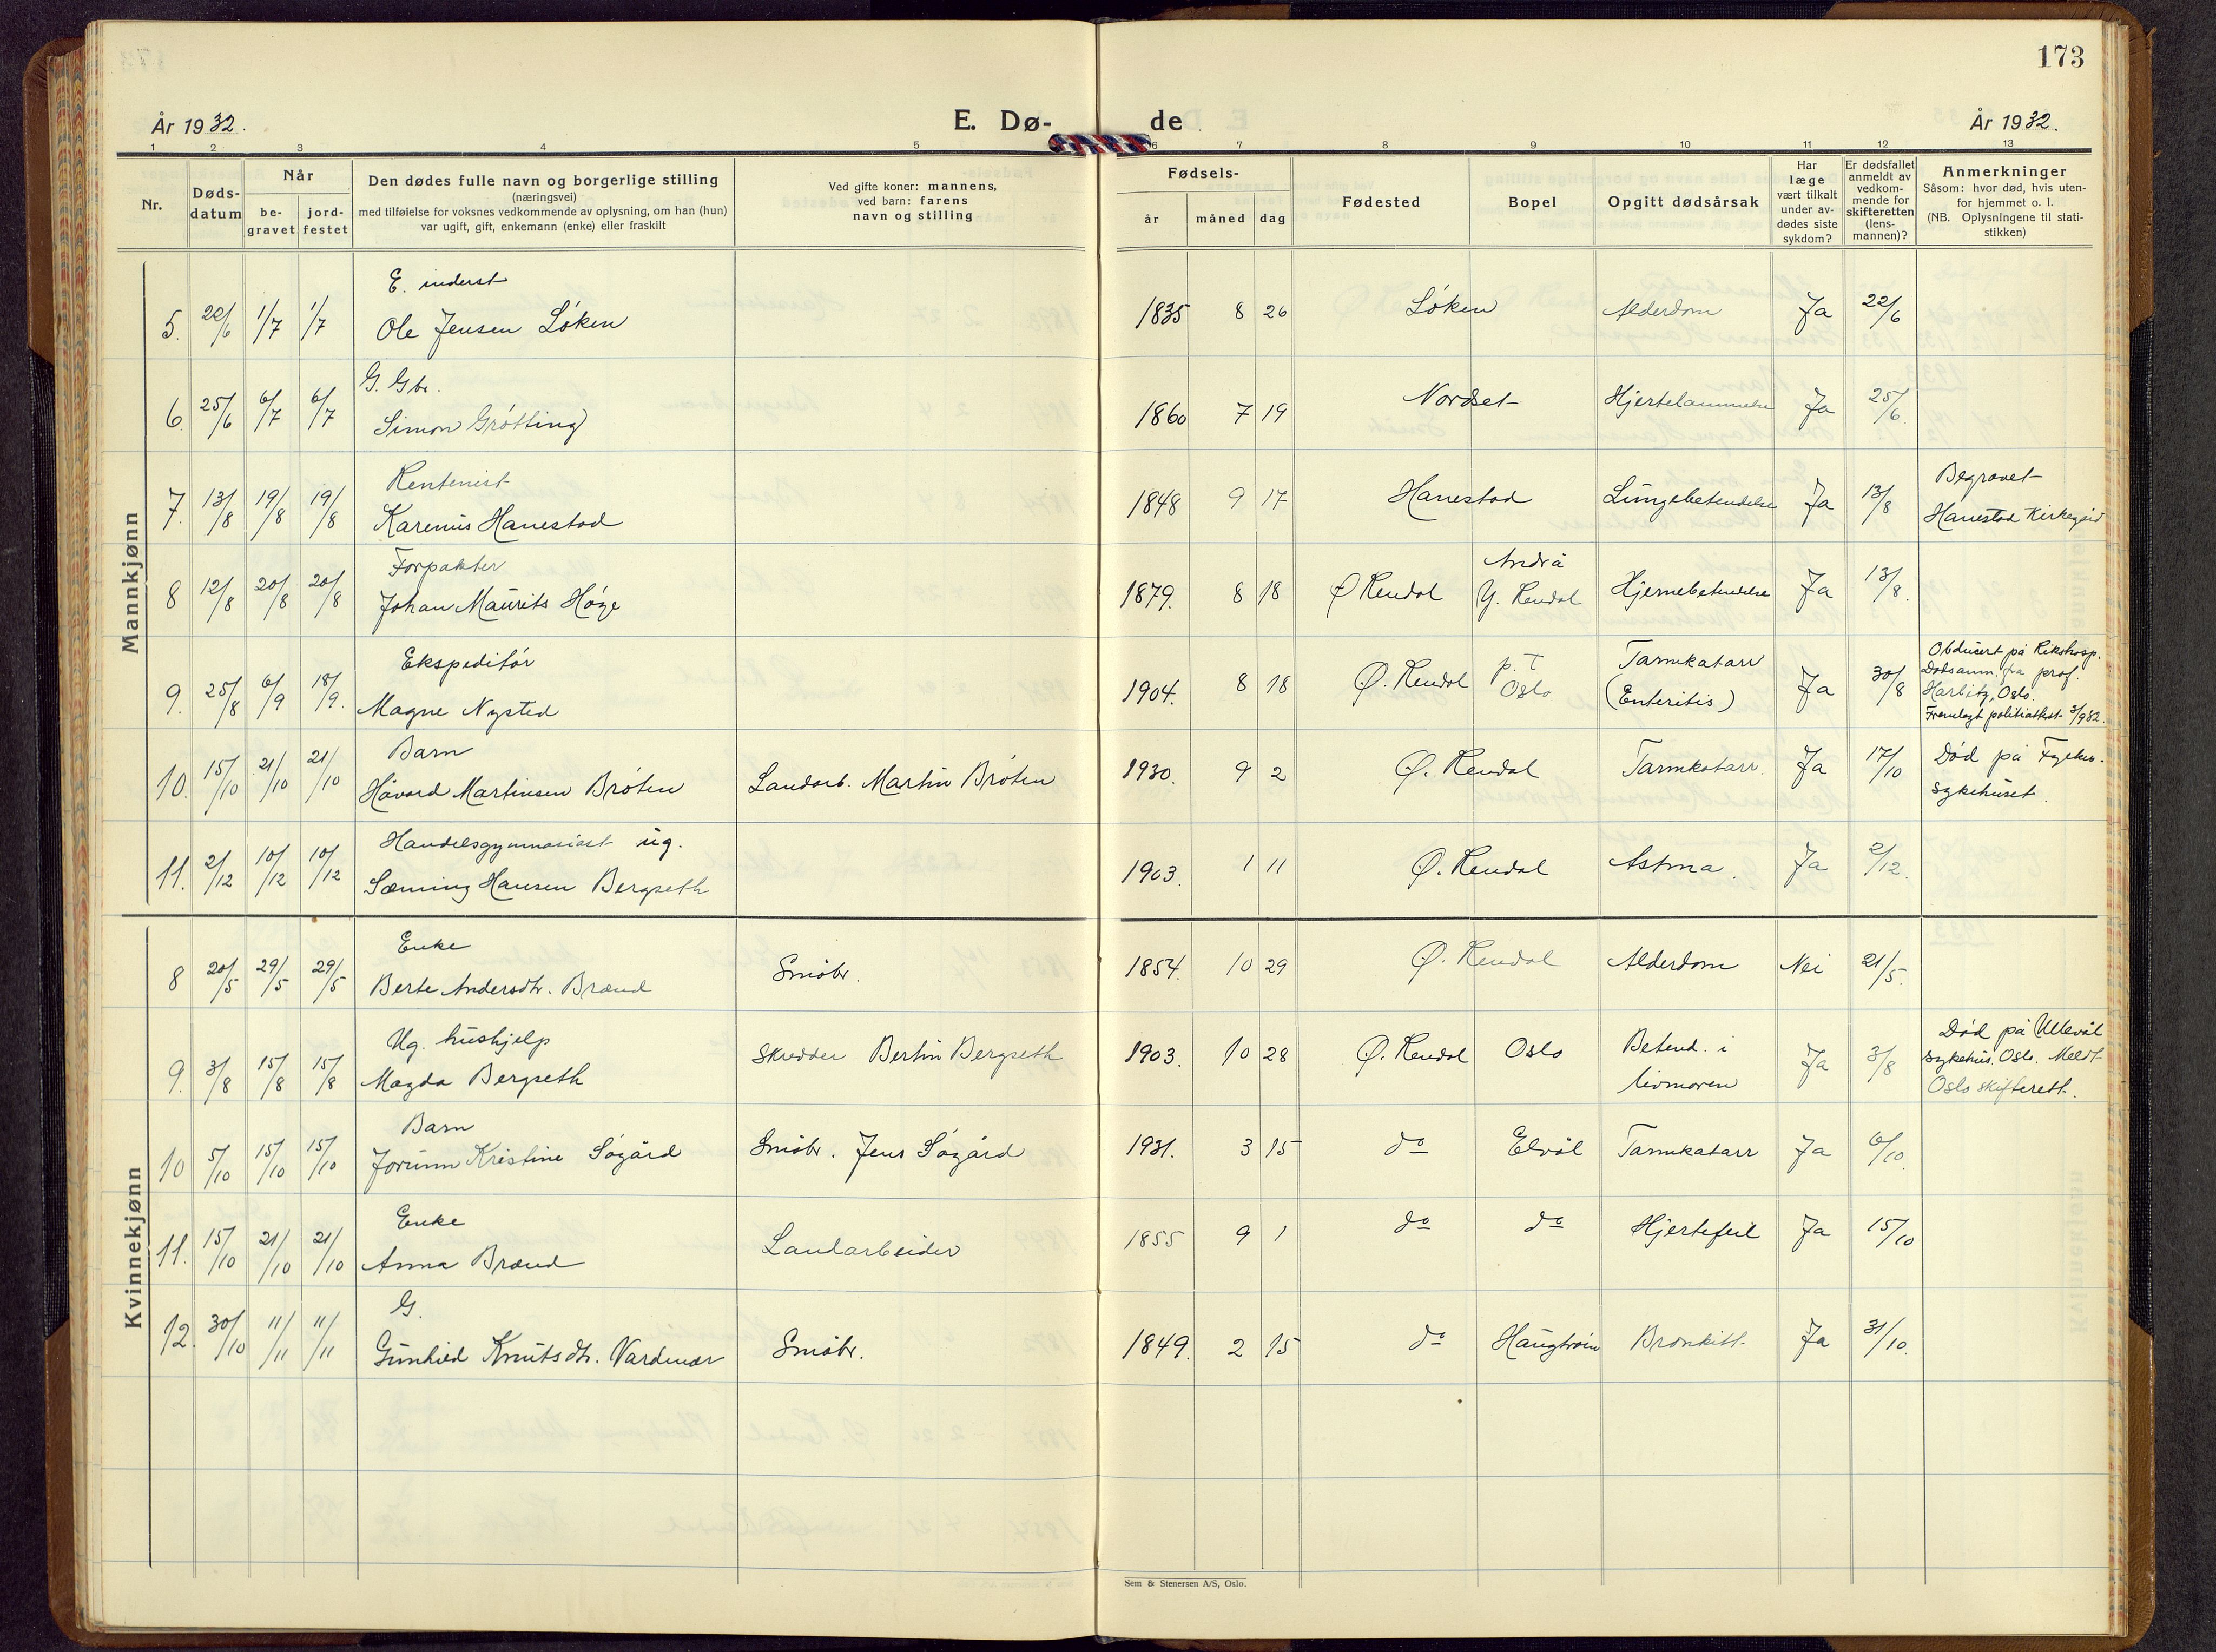 173
År 1932.
E. Dø-
de
År 1932.
1 2 3 4 5 6 7 8 9 10 11 12 13
Nr.
Døds-
datum
Når
be-
gravet
jord-
festet
Den dødes fulle navn og borgerlige stilling
(næringsvei)
med tilføielse for voksnes vedkommende av oplysning, om han (hun)
var ugift, gift, enkemann (enke) eller fraskilt
Ved gifte koner: mannens,
ved barn: farens
navn og stilling
Fødsels-
år
måned
dag
Fødested
Bopel
Opgitt dødsårsak
Har
læge
vært tilkalt
under av-
dødes siste
sykdom?
Er dødsfallet
anmeldt av
vedkom-
mende for
skifteretten
(lens-
mannen)?
Anmerkninger
Såsom: hvor død, hvis uten-
for hjemmet o. l.
(NB. Oplysningene til stati-
stikken)
Mannkjønn
E. inderst
5. 22/6 1/7 1/7 Ole Jensen Løken 1835 8 26 Løken Alderdom Ja 22/6
G. Gbr.
6. 25/6 6/7 6/7 Simon Grøtting 1860 7 19 Nordset Hjertelammelse Ja 25/6.
Rentenist
7. 13/8 19/8 19/8 Karenus Hanestad 1848 9 17 Hanestad Lungebetendelse Ja 13/8
Begravet
Hanestad Kirkegård
Forpakter
8 12/8 20/8 20/8 Johan Maurits Høye 1879. 8 18 Ø Rendal
Andrå
Y. Rendal
Hjernebetendelse Ja 13/8.
Ekspeditør
9. 25/8 6/9 18/9. Magne Nysted 1904. 8 18 Ø. Rendal
p. T
Oslo
Tarmkatarr
(Enteritis)
Ja 30/8
Obdusert på Rikshosp.
Dødsanm. fra prof.
Harbitz, Oslo.
Fremlagt politiattest 3/9 32.
Barn
10. 15/10 21/10 21/10 Håvard Martinsen Brøten Landarb. Martin Brøten 1930. 9 2 Ø. Rendal Tarmkatarr. Ja 17/10
Død på
sykehuset.
Handelsgymnasiast ug.
11. 2/12 10/12 10/12 Sæming Hansen Bergseth 1903. 1 11 Ø. Rendal Astma. Ja 2/12.
Kvinnekjønn
Enke
8 20/5 29/5 29/5 Berte Andersdtr. Brænd Småbr. 1854. 10 29 Ø. Rendal Alderdom Nei 21/5.
Ug. hushjelp
9. 3/8 15/8 15/8 Magda Bergseth Skredder Bertin Bergseth 1903. 10 28 Ø. Rendal Oslo
Betend. i
livmoren
Ja 3/8
Død på Ullevål
sykehus. Oslo. Meldt
Oslo skifterett.
Barn
10 5/10 15/10 15/10 Jorunn Kristine Søgård Småbr. Jens Søgård 1931. 3 15 do Elvål Tarmkatarr Ja 6/10.
Enke
11. 15/10 21/10 21/10 Anna Brænd Landarbeider 1855 9 1 do do Hjertefeil Ja 15/10
G.
12. 30/10 11/11 11/11 Gunhild Knutsdtr. Vardenær Småbr. 1849. 2 15 do Haugtrøen Bronkitt Ja 31/10.
Sem & Stenersen A/S, Oslo.